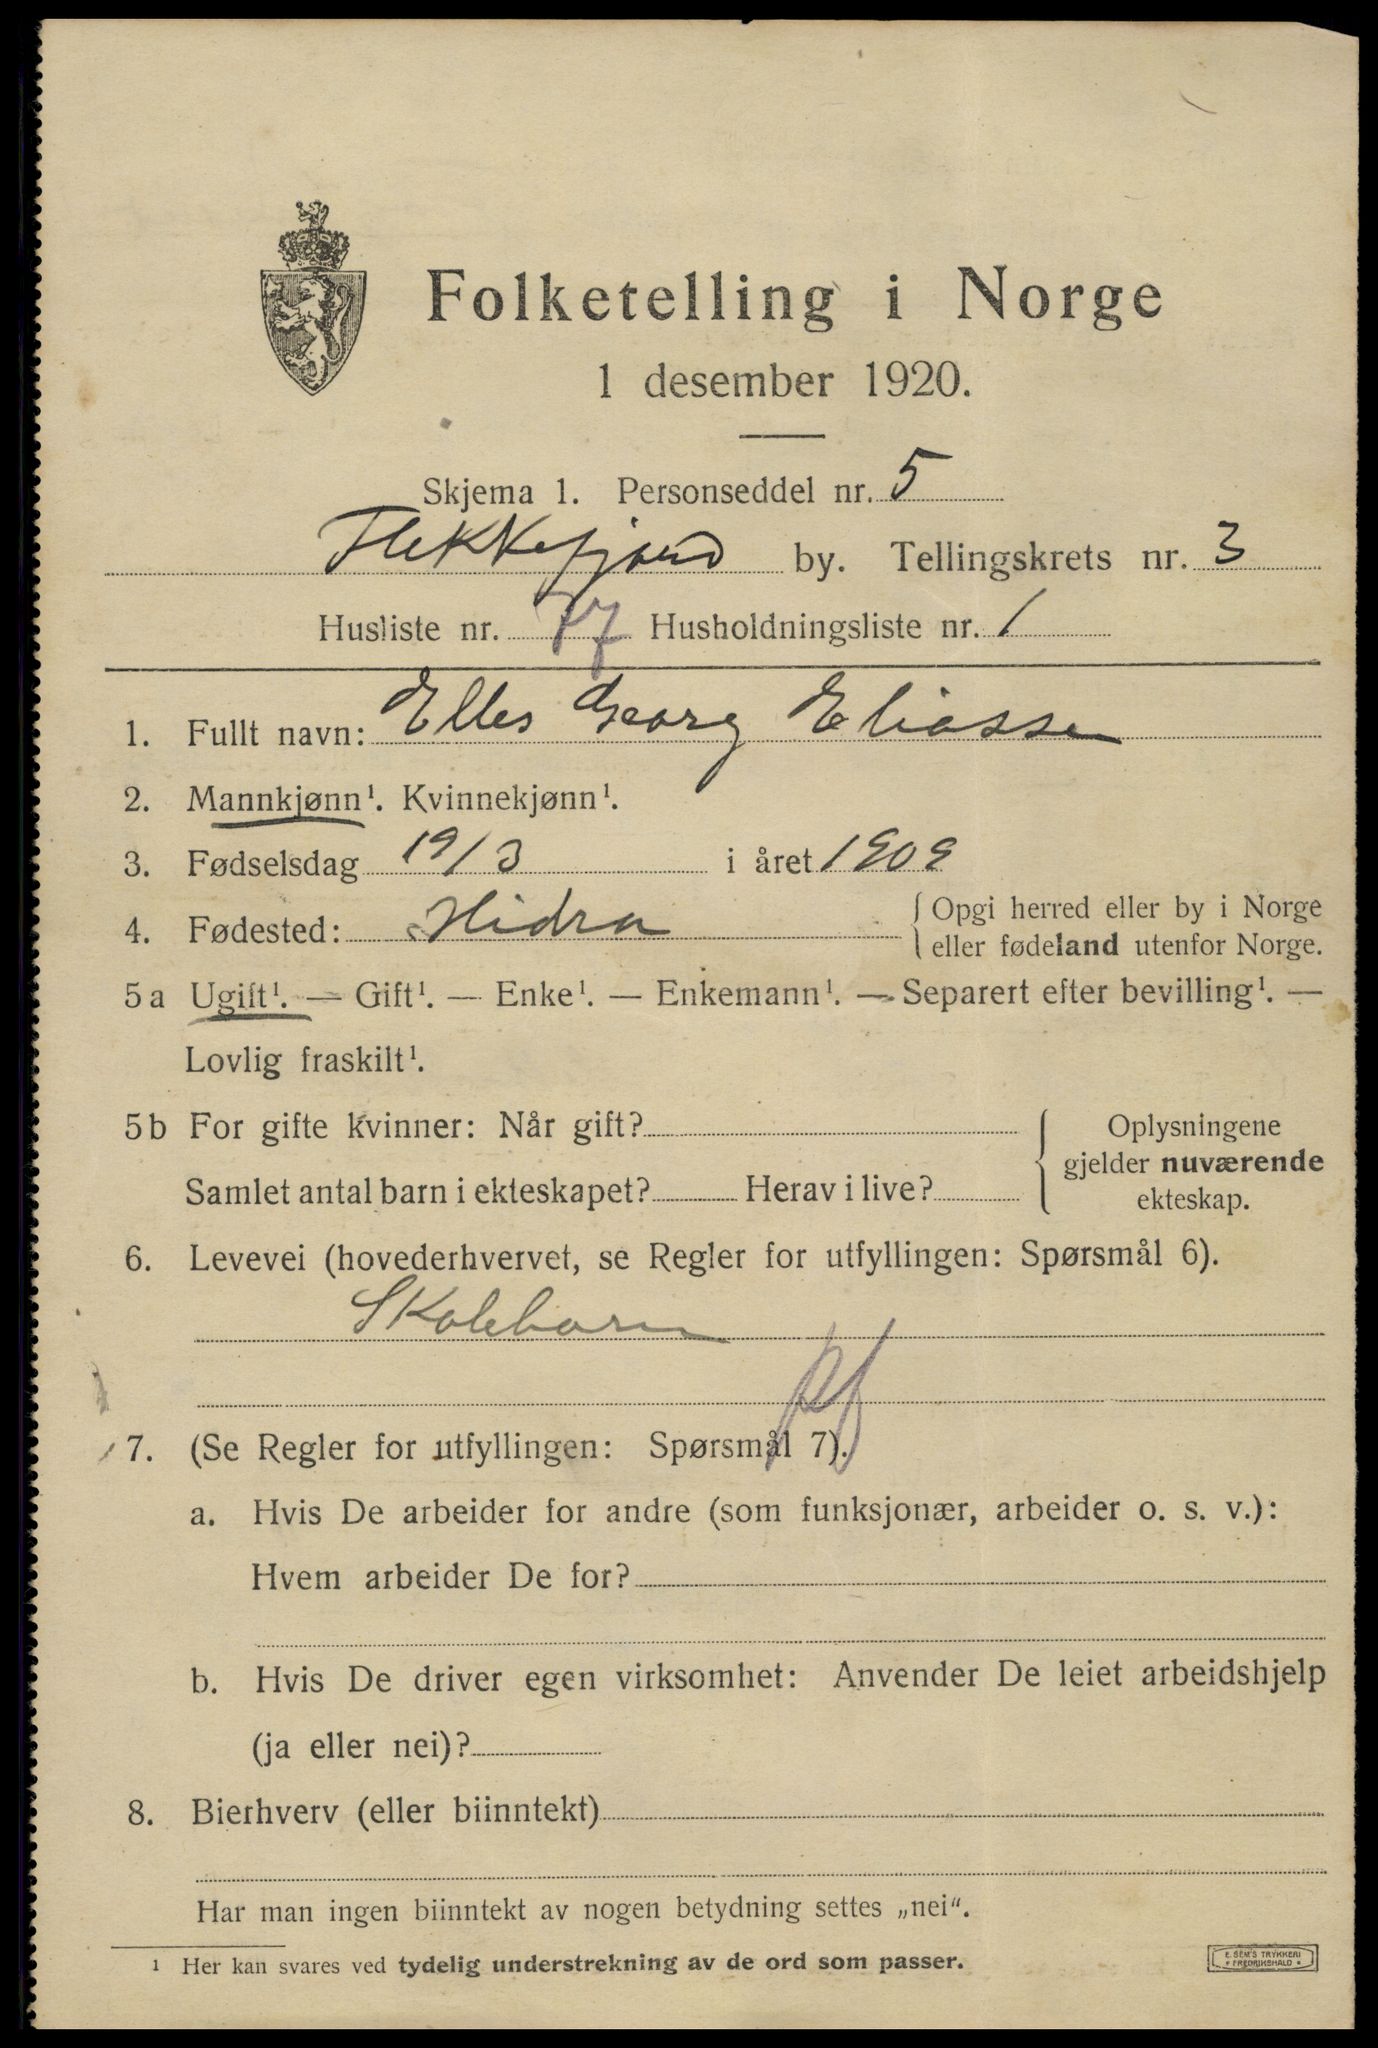 Folketelling i Norge
1 desember 1920.
Skjema 1. Personseddel nr. 5
Flekkefjord by. Tellingskrets nr. 3
Husliste nr. 77 Husholdningsliste nr. 1
1. Fullt navn: Elles Georg Eliassen
2. Mannkjønn¹. Kvinnekjønn¹.
3. Fødselsdag 19/3 i året 1909
4. Fødested: Hidra { Opgi herred eller by i Norge
eller fødeland utenfor Norge.
5 a Ugift¹. — Gift¹. — Enke¹. — Enkemann¹. — Separert efter bevilling¹. —
Lovlig fraskilt¹.
5 b For gifte kvinner: Når gift? { Oplysningene
gjelder nuværende
Samlet antal barn i ekteskapet? Herav i live? ekteskap.
6. Levevei (hovederhvervet, se Regler for utfyllingen: Spørsmål 6).
Skolebarn
7. (Se Regler for utfyllingen: Spørsmål 7).
a. Hvis De arbeider for andre (som funksjonær, arbeider o. s. v.):
Hvem arbeider De for?
b. Hvis De driver egen virksomhet: Anvender De leiet arbeidshjelp
(ja eller nei)?
8. Bierhverv (eller biinntekt)
Har man ingen biinntekt av nogen betydning settes „nei“.
¹ Her kan svares ved tydelig understrekning av de ord som passer.
E. SEM'S TRYKKERI
* FREDRIKSHALD *